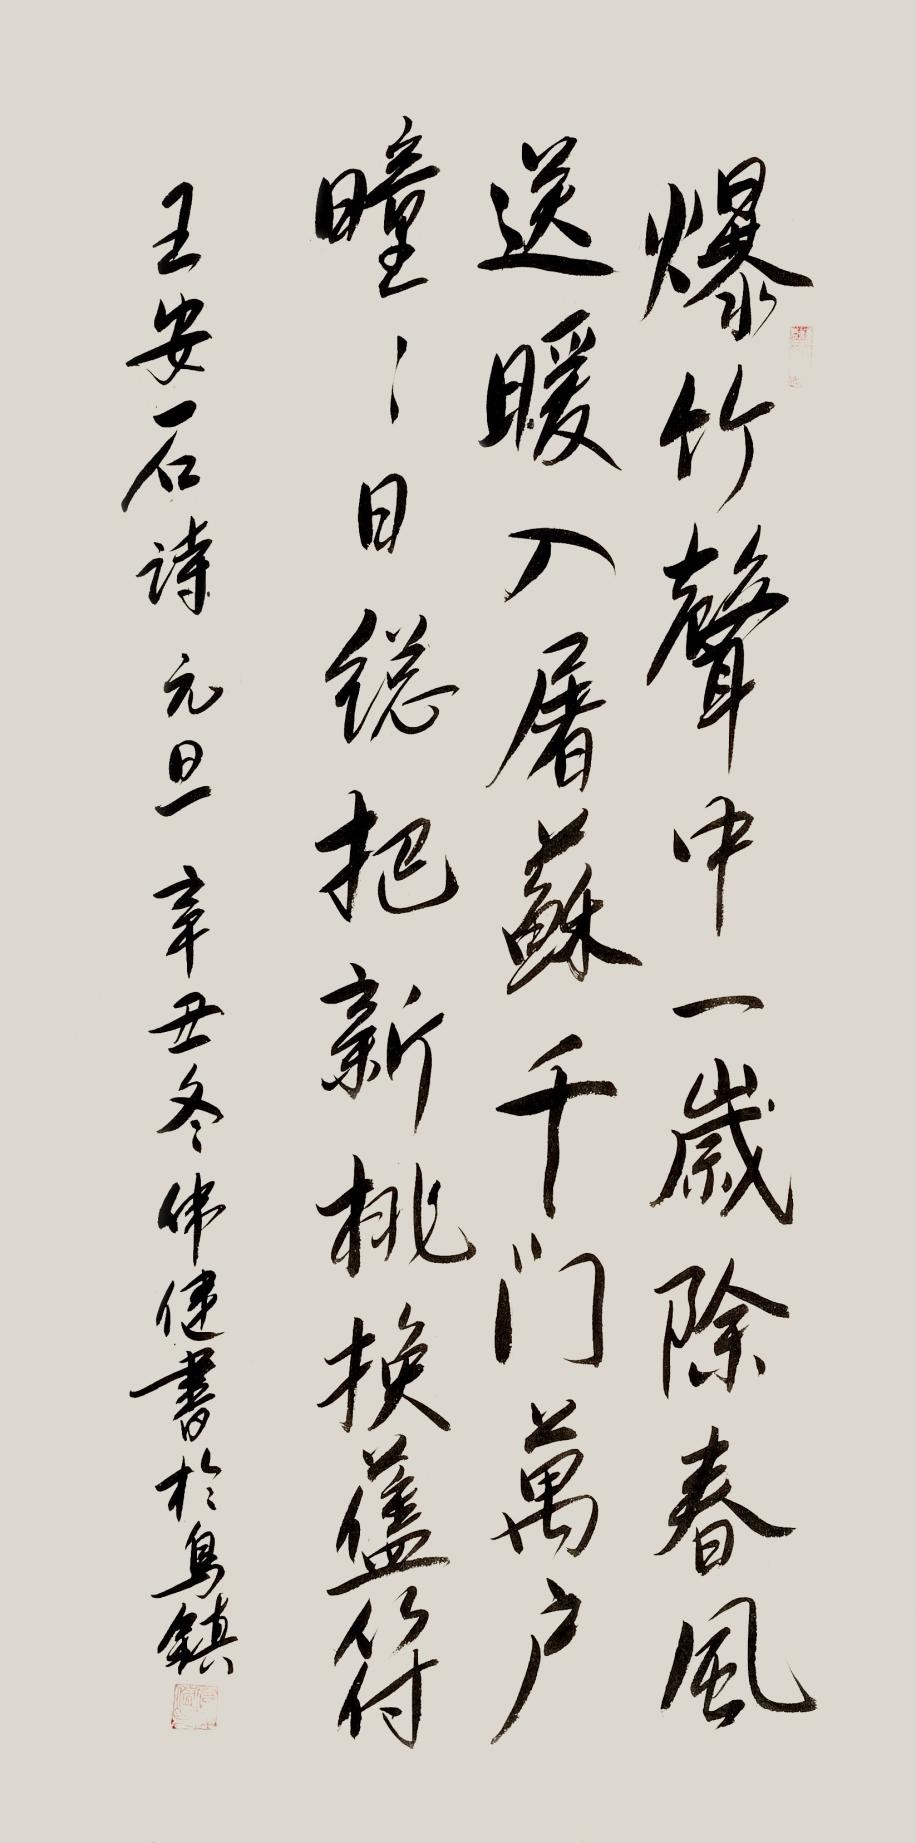 爆竹聲中一歲除春風
送暖入屠蘇千门萬户
曈〻日総把新桃换舊符
王安石诗 元旦 辛丑冬伟健書於烏鎮